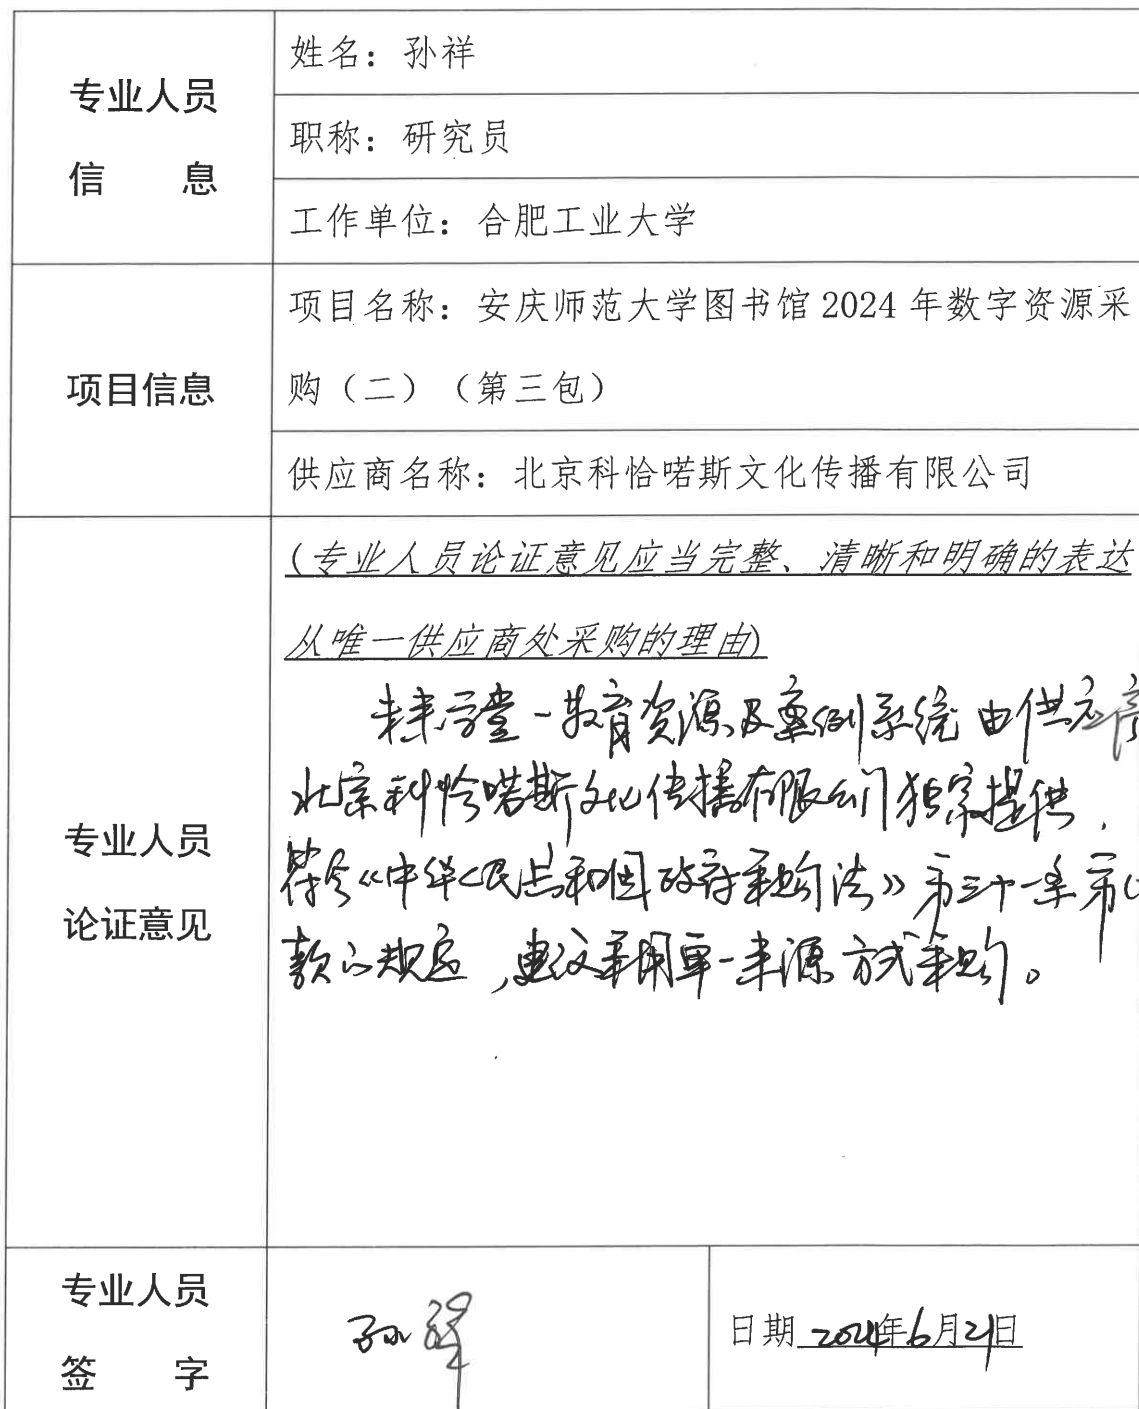 专业人员
信 息
姓名：孙祥
职称：研究员
工作单位：合肥工业大学
项目信息
项目名称：安庆师范大学图书馆 2024 年数字资源采
购（二）（第三包）
供应商名称：北京科恰喏斯文化传播有限公司
专业人员
论证意见
(专业人员论证意见应当完整、清晰和明确的表达
从唯一供应商处采购的理由)
未来学堂-教育资源及案例系统由供应商
北京科恰喏斯文化传播有限公司独家提供，
符合《中华人民共和国政府采购法》第三十一条第
款的规定，建议采用单一来源方式采购。
专业人员
签 字
孙祥
日期 2024年6月21日